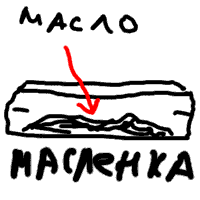 МАСЛО
МАСЛЕНКА